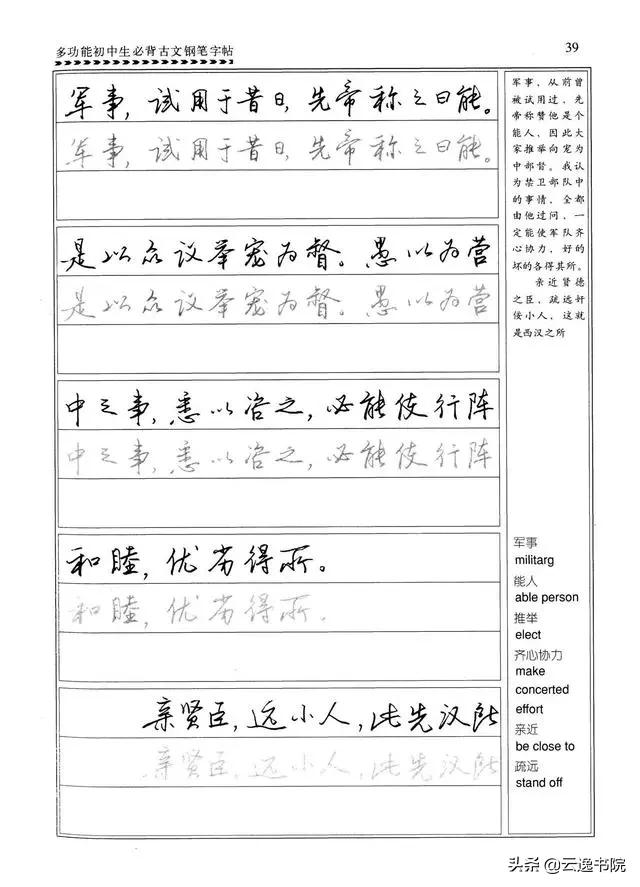 多功能初中生必背古文钢笔字帖
39
军事，试用于昔日，先帝称之曰能。
军事，试用于昔日，先帝称之曰能。
是以众议举宠为督。愚以为营
是以众议举宠为督。愚以为营
中之事，悉以咨之，必能使行阵
中之事，悉以咨之，必能使行阵
和睦，优劣得所。
和睦，优劣得所。
亲贤臣，远小人，此先汉所
亲贤臣，远小人，此先汉所
军事，从前曾
被试用过，先
帝称赞他是个
能人，因此大
家推举向宠为
中部督。我认
为禁卫部队中
的事情，全都
由他过问，一
定能使军队齐
心协力，好的
坏的各得其所。
亲近贤德
之臣，疏远奸
佞小人，这就
是西汉之所
军事
militarg
能人
able person
推举
elect
齐心协力
make
concerted
effort
亲近
be close to
疏远
stand off
头条 @云逸书院